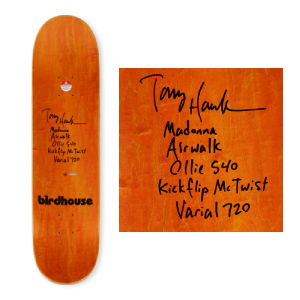 Tony Hawk
Madonna
Airwalk
Ollie 540
Kickflip McTwist
Varial 720
birdhouse
Tony Hawk
Madonna
Airwalk
Ollie 540
Kickflip McTwist
Varial 720